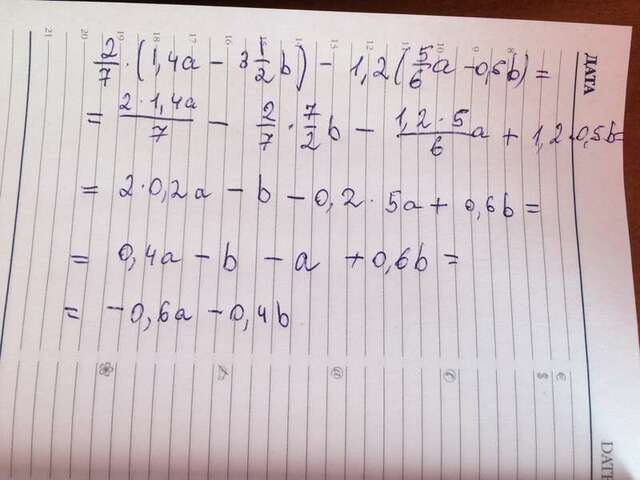 2/7 · (1,4a - 3 1/2 b) - 1,2(5/6 a - 0,5b) =
= 2·1,4a/7 - 2/7 · 7/2 b - 1,2·5/6 a + 1,2·0,5b=
= 2·0,2a - b - 0,2·5a + 0,6b =
= 0,4a - b - a + 0,6b =
= -0,6a - 0,4b
ДАТА
DATE
8
9
10
11
12
13
14
15
16
17
18
19
20
21
€
$